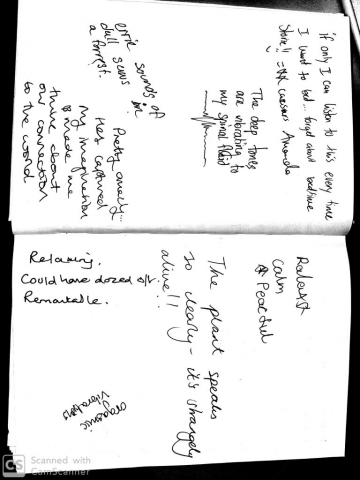 if only I can listen to this every time
I want to bed... forget about bedtime
The deep tones
are vibrating to
my spinal fluid
eerie sounds of
dull saws in
a forrest.
Pretty amazing...
Has captured
my imagination
& made me
think about
our connection
to the world
Relaxing.
Could have dozed off.
Remarkable.
Relaxed
calm
& Peaceful
The plant speaks
so clearly - it's strangely
alive!!
CS Scanned with
CamScanner